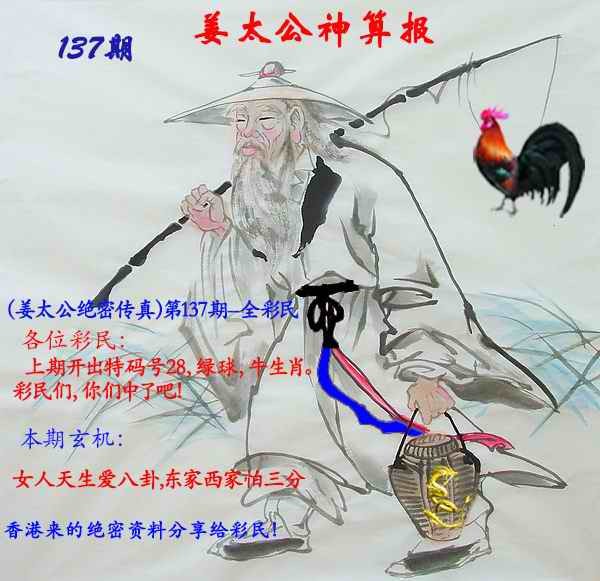 姜太公神算报
137期
(姜太公绝密传真)第137期--全彩民
各位彩民:
上期开出特码号28,绿球,牛生肖。
彩民们,你们中了吧!
本期玄机:
女人天生爱八卦,东家西家怕三分
香港来的绝密资料分享给彩民!